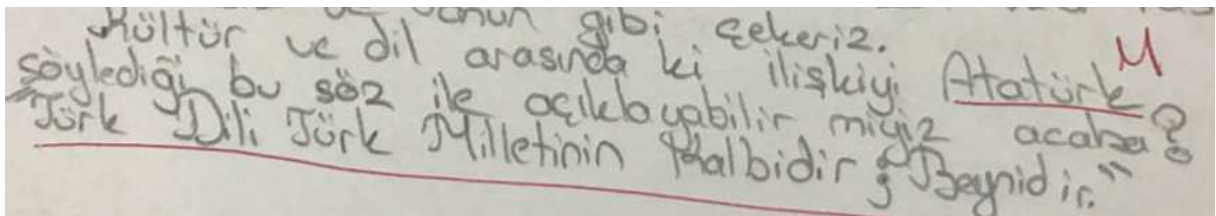 gibi çekeriz.
Kültür ve dil arasında ki ilişkiyi Atatürk M
söylediği bu söz ile açıklayabilir miyiz acaba?
"Türk Dili Türk Milletinin Kalbidir; Beynidir."